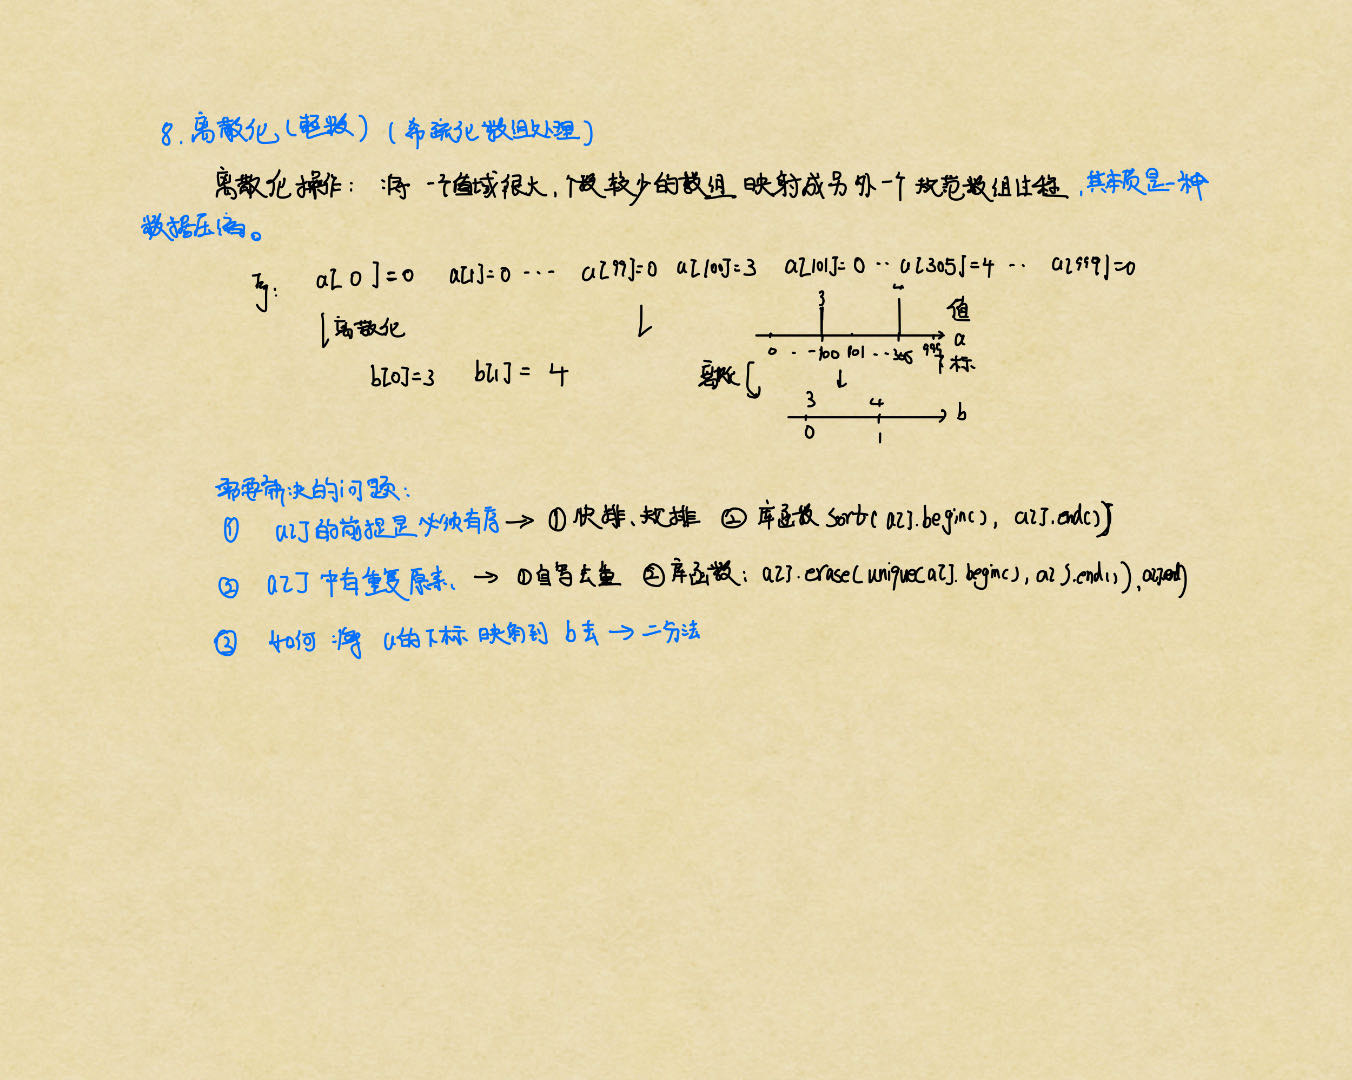 8. 离散化 (整数) (稀疏化数组处理)
离散化操作: 将一个值域很大, 个数较少的数组 映射成另外一个 规范数组 , 其本质是一种
数据压缩。
Eg: a[0]=0 a[1]=0 ··· a[99]=0 a[100]=3 a[101]=0 ·· a[305]=4 ·· a[999]=0
3 4 值
↓离散化 ↓ a
0 ·· 100 101 ·· 305 999 下标
b[0]=3 b[1]=4 离散 ↓
3 4 b
0 1
需要解决的问题:
① a[]的前提是必须有序 → ① 快排、归排 ② 库函数 sort(a[].begin(), a[].end())
② a[]中有重复原素、 → ①自写去重 ②库函数: a[].erase(unique(a[].begin(), a[].end()), a[].end)
③ 如何将 a的下标映射到 b去 → 二分法